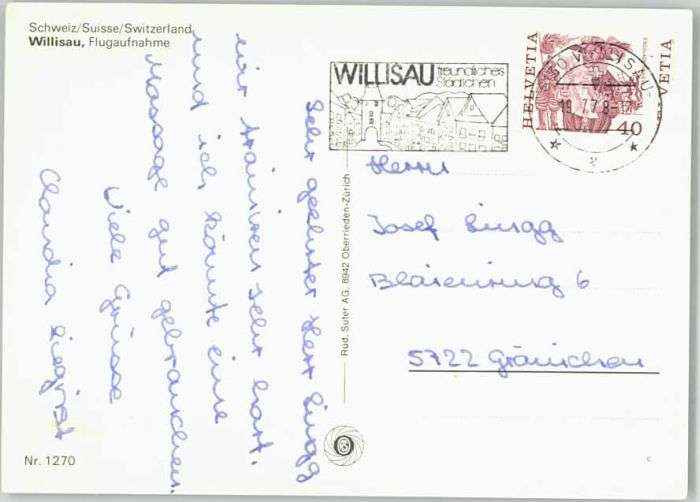 Schweiz/Suisse/Switzerland
Willisau, Flugaufnahme
WILLISAU freundliches
Städtchen
HELVETIA
40
VETIA
WILLISAU
Sehr geehrter Herr
wir trainieren sehr hart.
und ich könnte eine
Massage gut gebrauchen.
Viele Grüsse
Claudia Siegrist
Rud. Suter AG, 8942 Oberrieden-Zürich
Herrn
Josef
6
5722 Gränichen
Nr. 1270